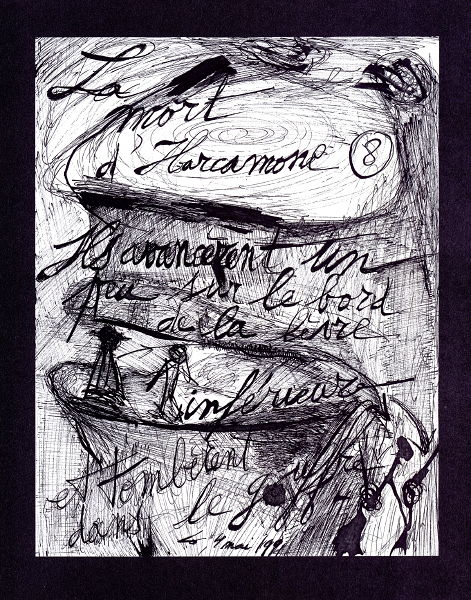 La
mort
d'Harcamone 8
Ils avancèrent un
peu sur le bord
de la lèvre
inférieure
et tombèrent
dans le gouffre
4 mai